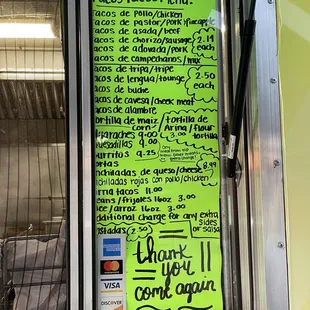 acos de pollo/chicken
acos de pastor/pork y pineapple
acos de asada/beef
acos de chorizo/sausage 2.19
acos de adovada/pork each
acos de campechanos/mix
acos de tripa/tripe
acos de lengua/tounge 2.50
acos de buche each
acos de cavesa/cheek meat
acos de alambre
ortilla de maiz/corn tortilla de Arina/flour tortilla
uaraches 9.00 3.00
uesadillas 9.00
urritos 9.25
ortas 8.99
nchiladas de queso/cheese
nchiladas rojas con pollo/chicken
irria tacos 11.00
eans/frijoles 16oz 3.00
ice/arroz 16oz 3.00
dditional charge for any extra
sides or salsa
ostadas 2.50
thank
you !!
come again
AMERICAN EXPRESS
MasterCard
VISA
DISCOVER